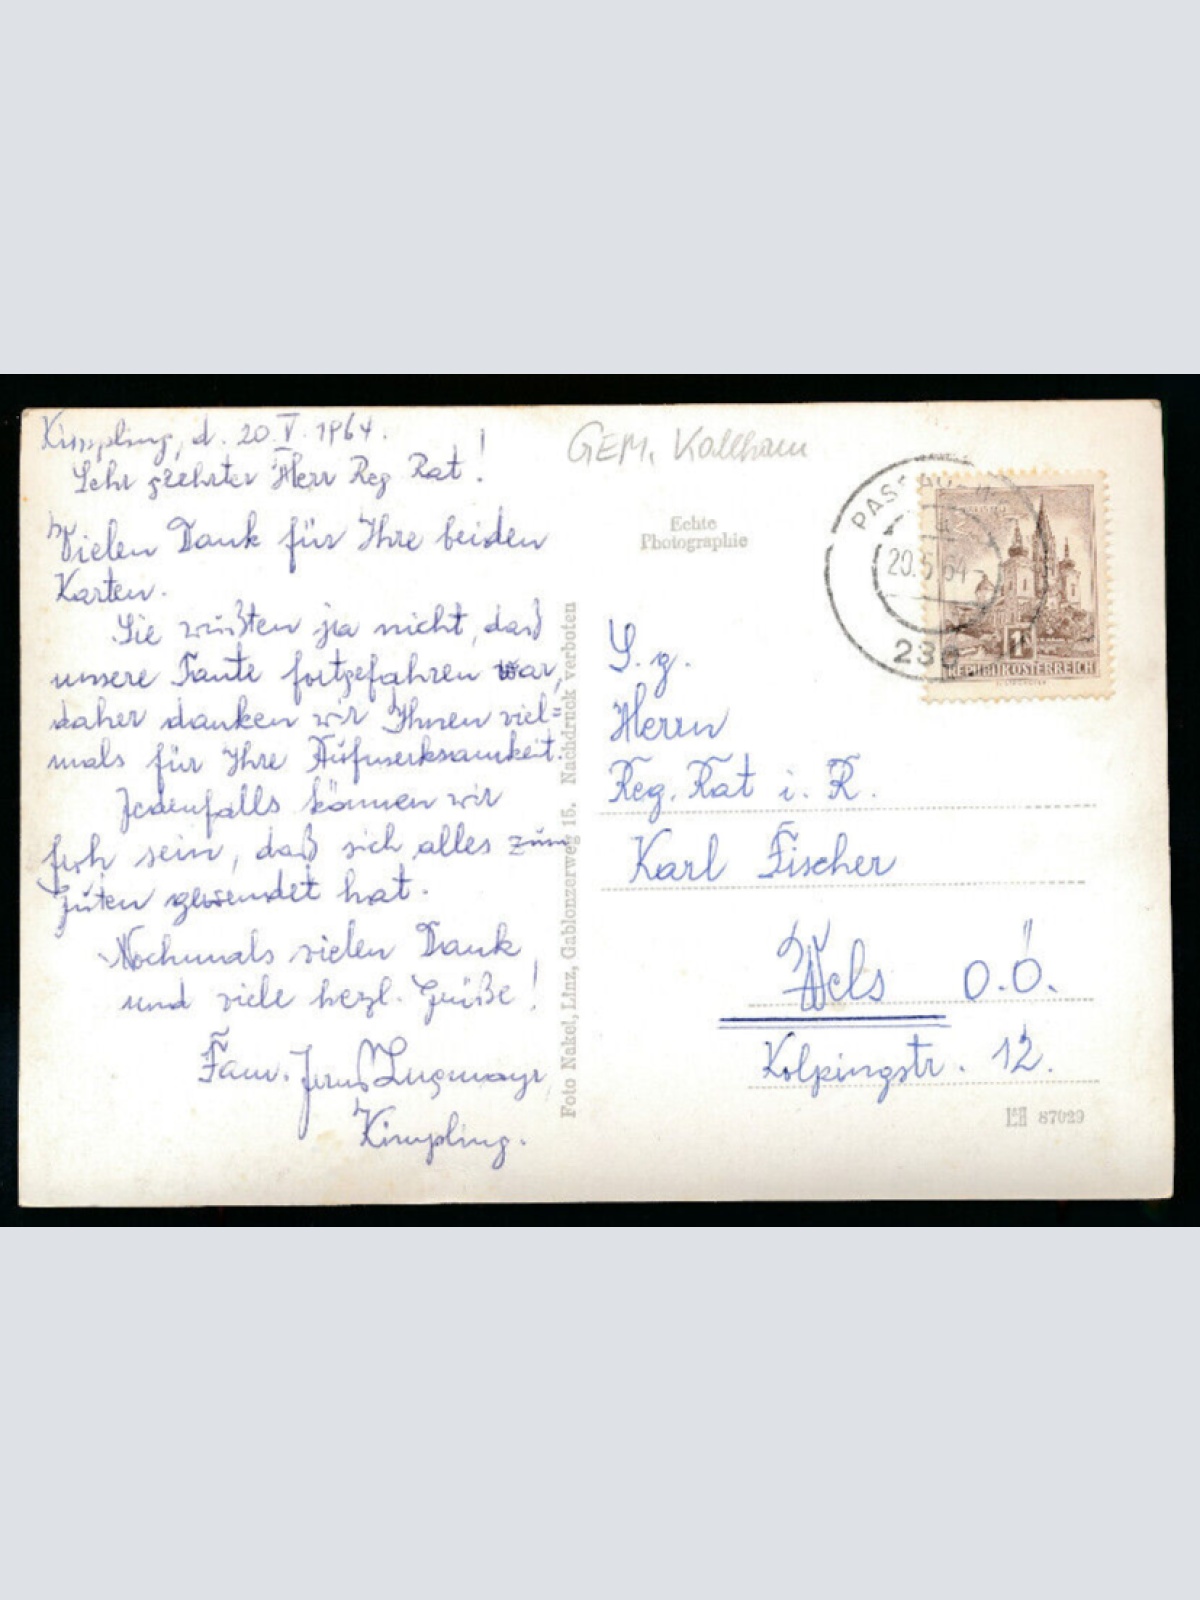 Kimpling, d. 20. V. 1964.
Sehr geehrter Herr Reg Rat!
Vielen Dank für Ihre beiden
Karten.
Sie wußten ja nicht, daß
unsere Tante fortgefahren war,
daher danken wir Ihnen viel=
mals für Ihre Aufmerksamkeit.
Jedenfalls können wir
froh sein, daß sich alles zum
Guten gewendet hat.
Nochmals vielen Dank
und viele herzl. Grüße!
Fam. Lugmayr
Kimpling.
Foto Nakel, Linz, Gablonzerweg 15. Nachdruck verboten
GEM. Kallham
Echte
Photographie
PASSAU
20.5.64
REPUBLIK ÖSTERREICH
S. g.
Herrn
Reg. Rat i. R.
Karl Fischer
Wels O.Ö.
Kolpingstr. 12.
87029